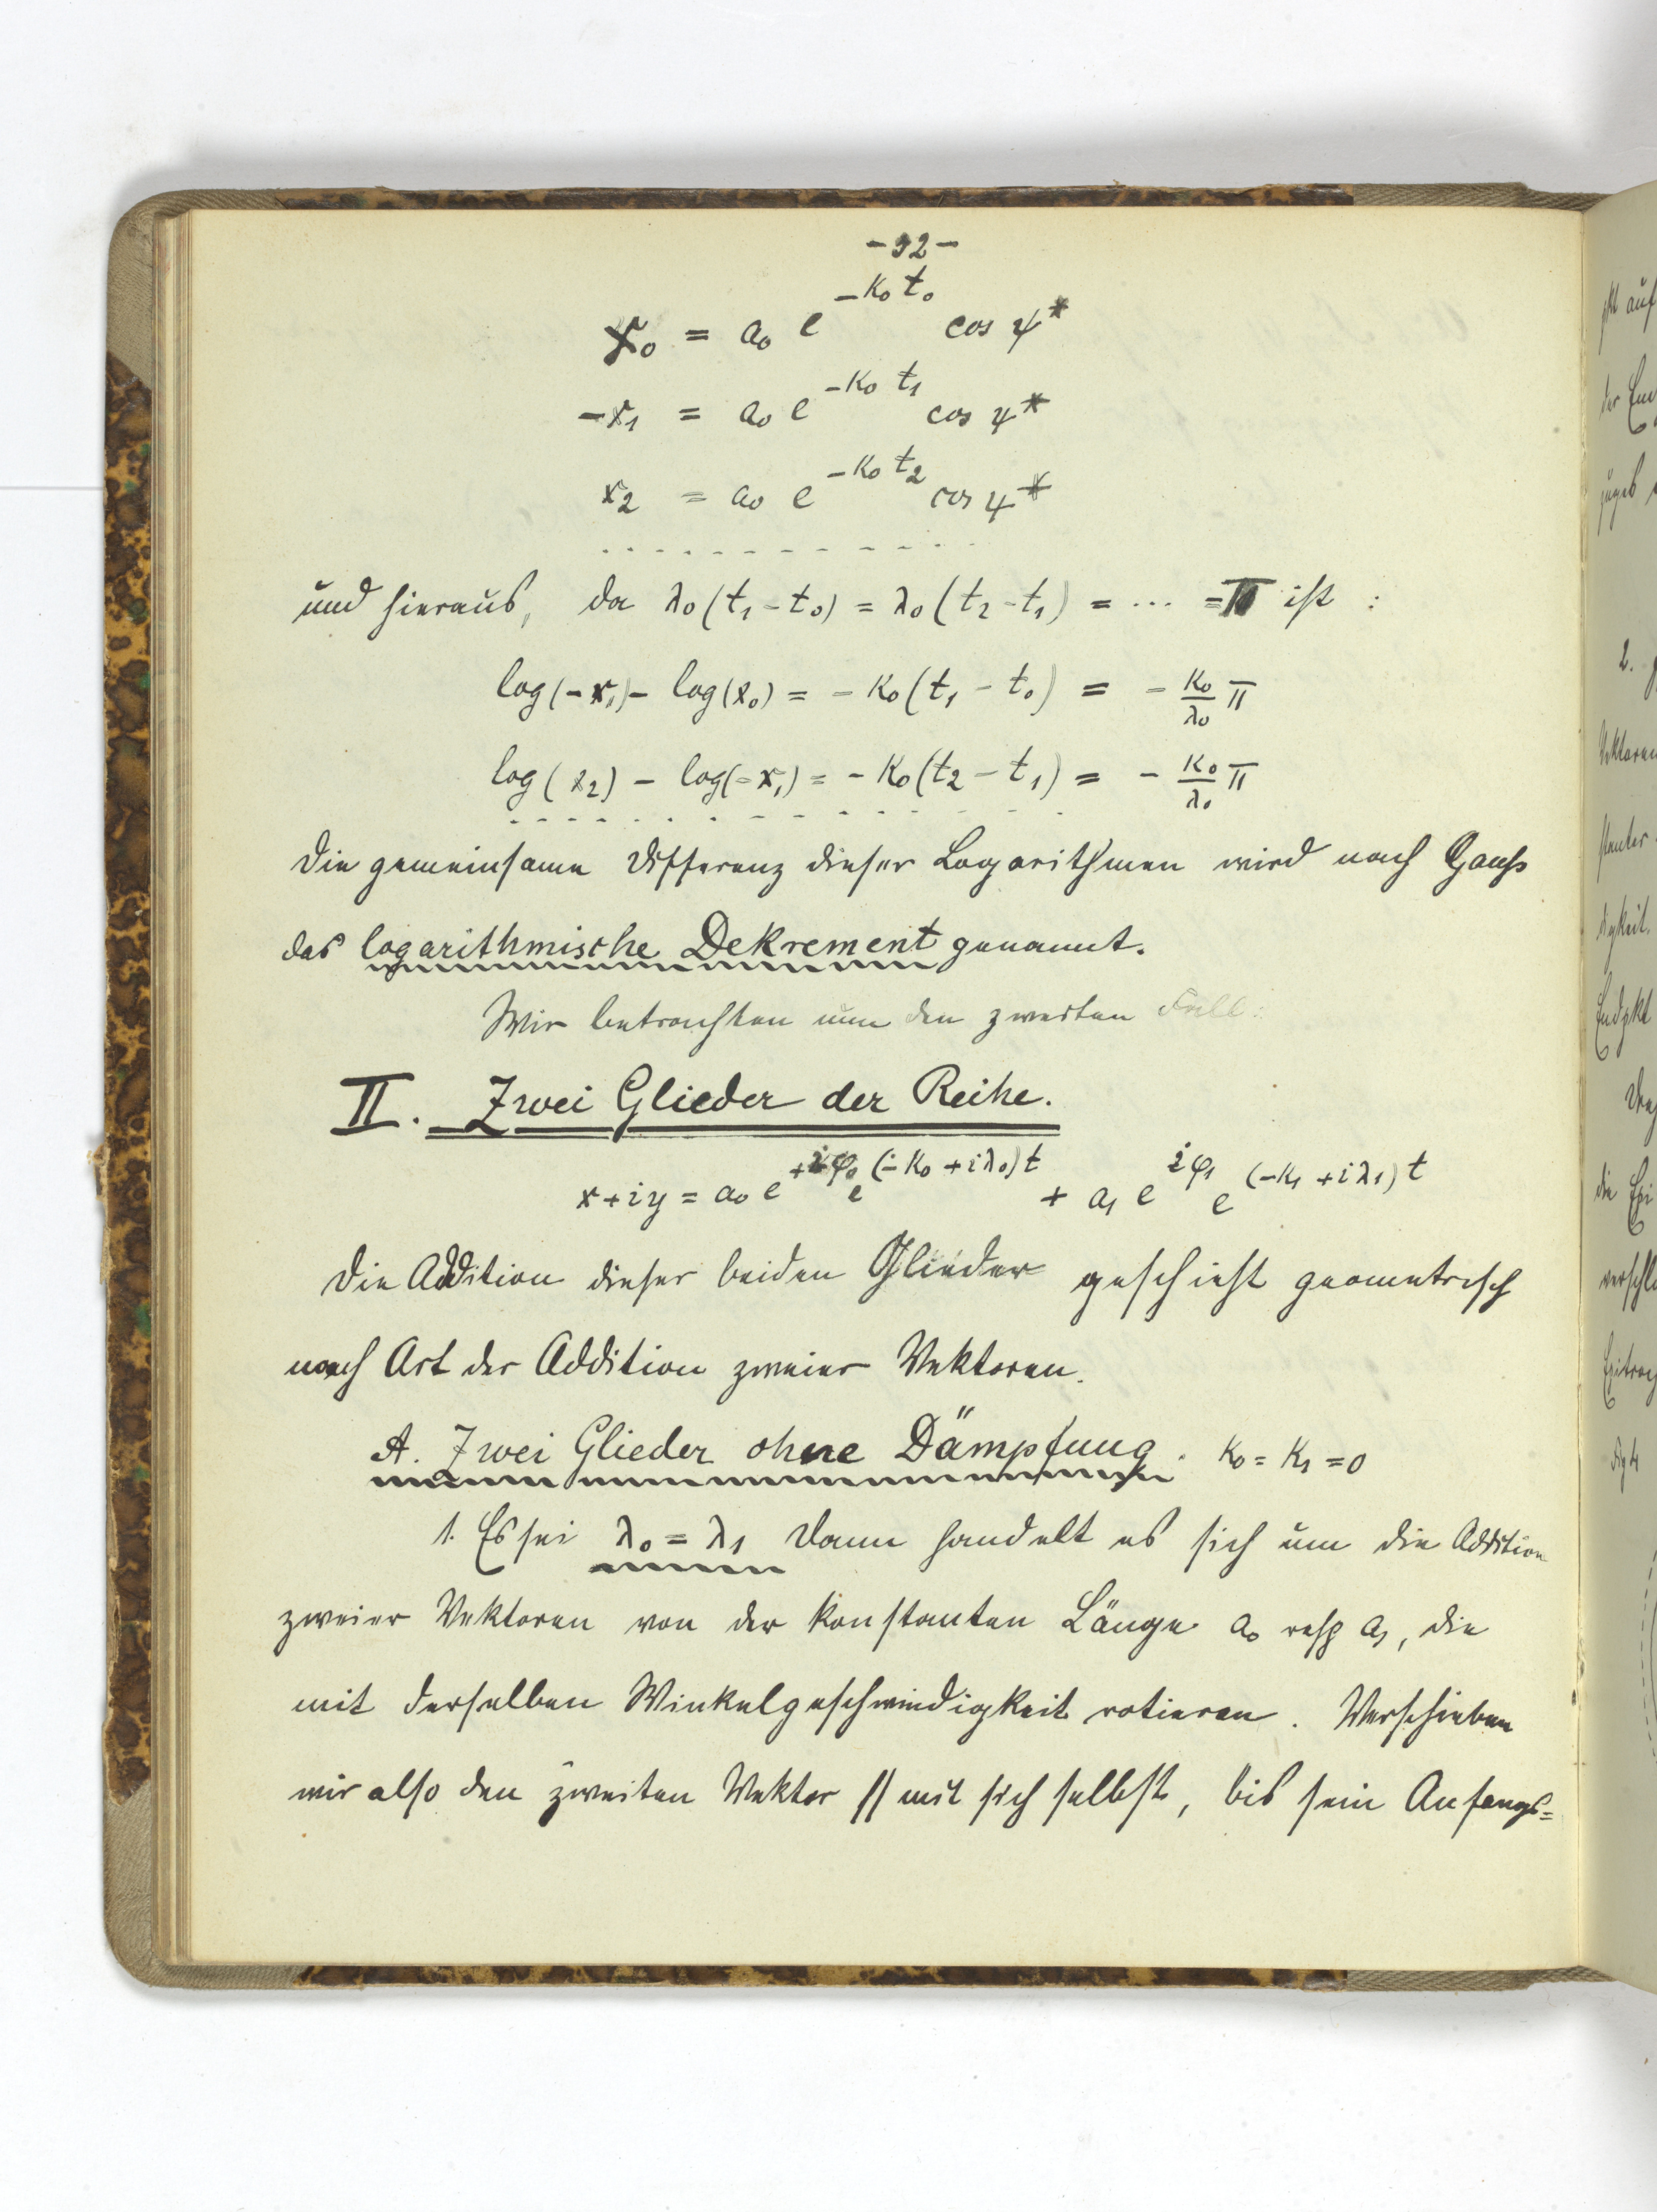 -92-
x₀ = a₀ e^{-κ₀ t₀} cos ψ*
-x₁ = a₀ e^{-κ₀ t₁} cos ψ*
x₂ = a₀ e^{-κ₀ t₂} cos ψ*
. . . . . . . . . . . .
und hieraus, da λ₀(t₁-t₀) = λ₀(t₂-t₁) = ... = π ist :
log(-x₁) - log(x₀) = - κ₀(t₁ - t₀) = - κ₀/λ₀ π
log(x₂) - log(-x₁) = - κ₀(t₂ - t₁) = - κ₀/λ₀ π
. . . . . . . . . . . . . . .
Die gemeinsame Differenz dieser Logarithmen wird nach Gauß
das logarithmische Dekrement genannt.
Wir betrachten nun den zweiten Fall:
II. Zwei Glieder der Reihe.
x+iy = a₀ e^{+iφ₀} e^{(-κ₀+iλ₀)t} + a₁ e^{iφ₁} e^{(-κ₁+iλ₁)t}
Die Addition dieser beiden Glieder geschieht geometrisch
nach Art der Addition zweier Vektoren.
A. Zwei Glieder ohne Dämpfung. κ₀ = κ₁ = 0
1. Es sei λ₀ = λ₁ Dann handelt es sich um die Addition
zweier Vektoren von der konstanten Länge a₀ resp a₁, die
mit derselben Winkelgeschwindigkeit rotieren. Verschieben
wir also den zweiten Vektor || mit sich selbst, bis sein Anfangs=